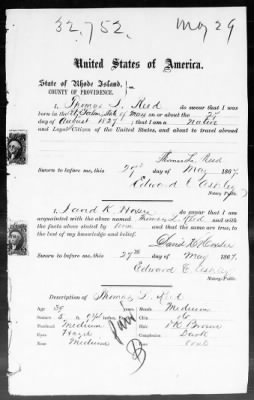 32,752. May 29
United States of America.
State of Rhode Island,
COUNTY OF PROVIDENCE.
I, Thomas L. Reed do swear that I was
born in the of Mass on or about the 27
day of August 1827; that I am a native
and Loyal Citizen of the United States, and about to travel abroad
Thomas L. Reed
Sworn to before me, this 29th day of May 1867.
Edward C.
Notary Public.
I, David K. do swear that I am
acquainted with the above named Thomas L. Reed and with
the facts above stated by him and that the same are true, to
the best of my knowledge and belief.
David K.
Sworn to before me, this 29th day of May 1867.
Edward C.
Notary Public.
Description of Thomas L. Reed
Age 39 Mouth Medium
Stature 5.
Forehead Medium Hair Dk Brown
Eyes Hazel Complexion Dark
Nose Medium Face Oval
Paid